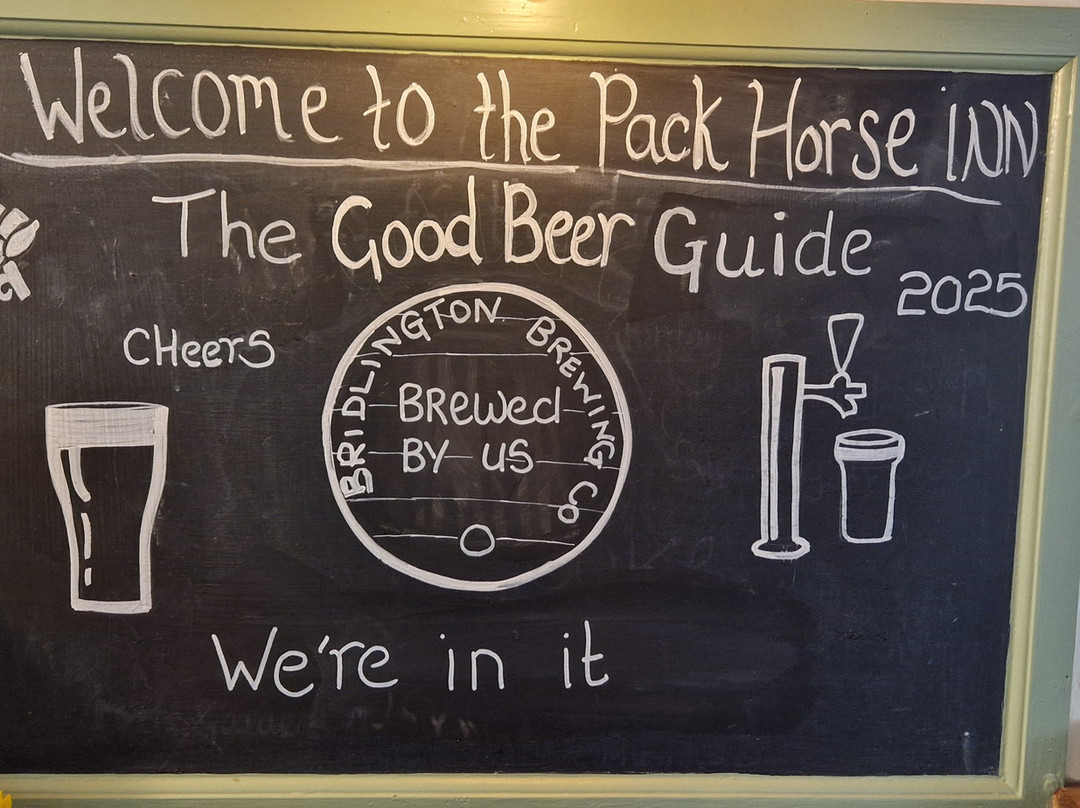 Welcome to the Pack Horse iNN
The Good Beer Guide
2025
CHeerS
BRIDLINGTON BREWING Co
BRewed
BY US
We're in it